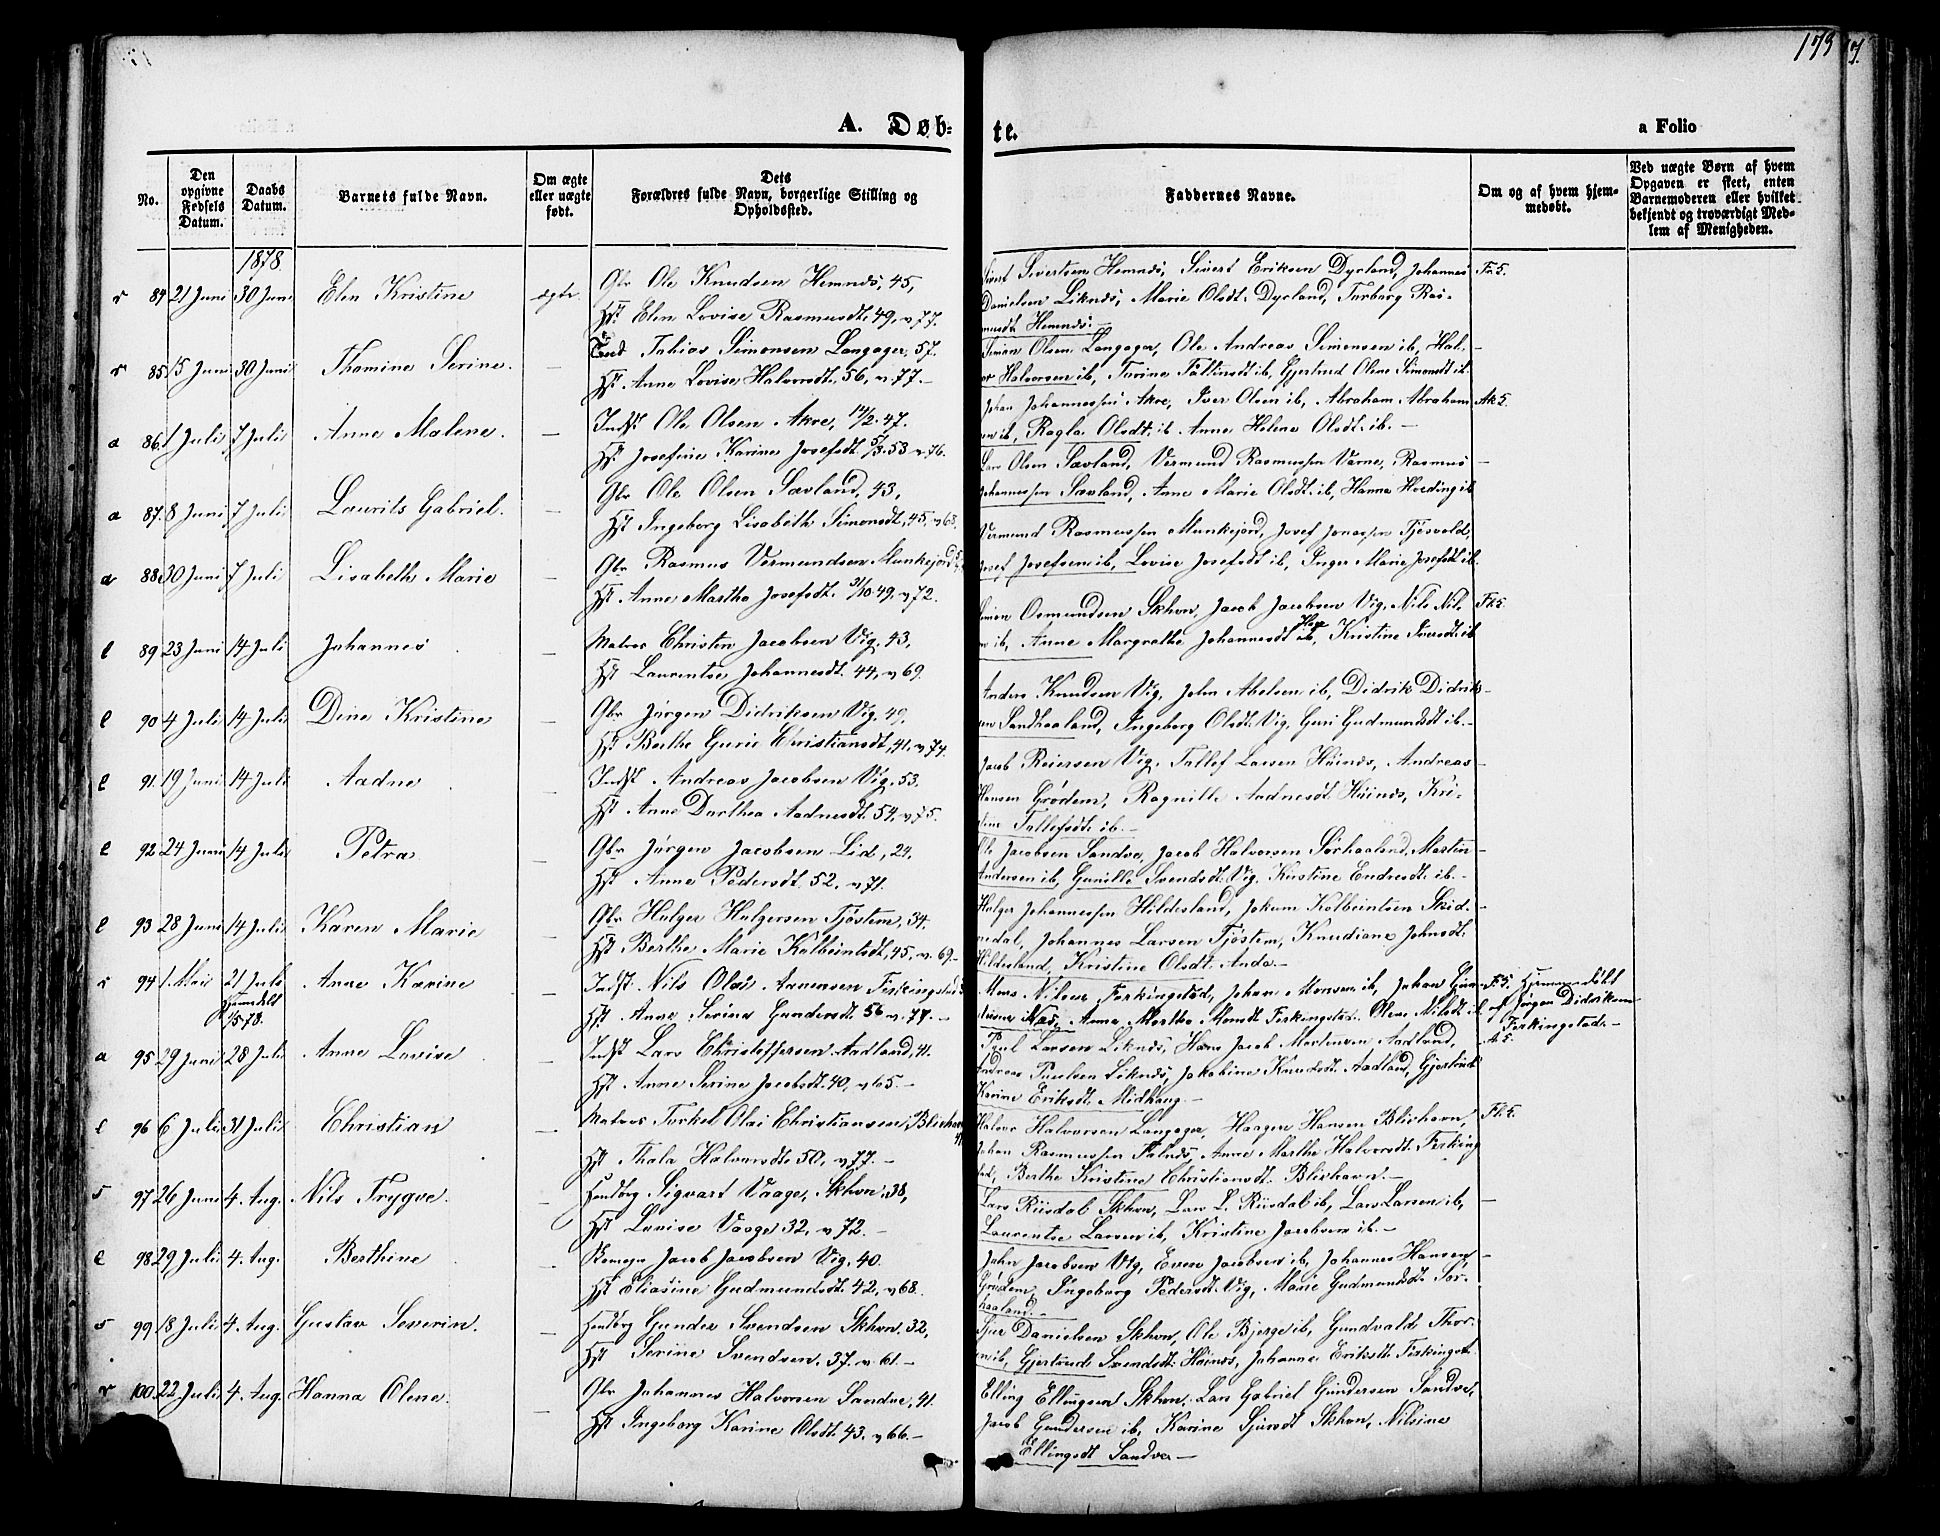 179
A. Døb-
te.
a Folio
No.
Den opgivne Fødsels Datum.
Daabs Datum.
Barnets fulde Navn.
Om ægte eller uægte født.
Dets Forældres fulde Navn, borgerlige Stilling og Opholdssted.
Faddernes Navne.
Om og af hvem hjemmedøbt.
Ved uægte Børn af hvem Opgaven er skeet, enten Barnemoderen eller hvilket bekjendt og troværdigt Medlem af Menigheden.
1878.
84 21 Juni 30 Juni Elen Kristine ægte Gbr Ole Knudsen Hemnes, 45,
Hst. Elen Lovise Rasmusdt. 49, v 77.
Sivertsen Hemnes, Sivert Eriksen Dyrland, Johannes
Danielsen Liknes, Marie Olsdt. Dyrland, Torborg Ras-
musdt Hemnes.
85 15 Juni 30 Juni Thomine Serine. — Tobias Simonsen Langager, 57.
Hst. Anne Lovise Halvorsdt, 56, v 77.—
Simon Olsen Langager, Ole Andreas Simonsen ib, Hal-
Halvorsen ib, Gjertrud Olene Simonsdt ib
86. 1 Juli 7 Juli Anne Malene. — Indst Ole Olsen Akre, 14/2 47.
Hst. Josefine Karine Josefsdt. 53 v 76.
Johan Johannessen Akre, Iver Olsen ib, Abraham Abraham
ib, Ragla Olsdt. ib. Anne Helene Olsdt. ib. —
Ak 5.
87. 8 Juni 7 Juli Laurits Gabriel. — Gbr Ole Olsen Sævland, 43,
Hst Ingeborg Lisabeth Simonsdt, 45, v 68.
Lars Olsen Sævland, Vermund Rasmussen Varne, Rasmus
Johannessen Sævland, Anne Marie Olsdt. ib, Hanna Hveding ib
88. 30 Juni 7 Juli Lisabeth Marie — Gbr Rasmus Vermundsen Munkejord
Hst Anne Martha Josefsdt. 31/10 49, v 72.
Vermund Rasmussen Munkejord, Josef Jonassen Tjøsvold,
Josef Josefsen ib, Lovise Josefsdt ib, Inger Marie Josefsdt ib.
89 23 Juni 14 Juli Johannes — Matros Christen Jacobsen Vig, 43,
Hst Laurentse Johannesdt. 44, v 69.
Simon Osmundsen Skhvn, Jacob Jacobsen Vig, Nils Nils-
ib, Anne Margrethe Johannesdt, Kristine Iversdt ib
90 4 Juli 14 Juli Dina Kristine — Gbr Jørgen Didriksen Vig, 49,
Hst Berthe Gurie Christiansdt, 41, v 74.
Anders Knudsen Vig, John Abelsen ib, Didrik Didrik-
Sandhaaland, Ingeborg Olsdt. Vig, Guri Gudmundsdt ib.—
91. 19 Juni 14 Juli Aadne — Indst Andreas Jacobsen Vig, 53.
Hst. Anne Dorthea Aadnesdt. 54, v 75.
Jacob Reiersen Vig, Tallef Larsen Hüines, Andreas
Hansen Grødem, Ragnille Aadnesdt. Hüines, Kri-
stine Tallefsdt ib.—
92 24 Juni 14 Juli Petra. — Gbr Jørgen Jacobsen Lid, 24.
Hst Anne Pedersdt. 52, v 71.
Ole Jacobsen Sandve, Jacob Halvorsen Sørhaaland, Martin
Andersen ib, Gunille Svendsdt. Vig, Kirstine Endresdt. ib.—
93 28 Juni 14 Juli Karen Marie — Gbr Holger Holgersen Tjøstem, 34.
Hst Berthe Marie Kolbeinsdt, 45, v. 69.—
Holger Johannessen Hildesland, Jokum Kolbeintsen Skid-
medal, Johannes Larsen Tjøstem, Knudiane Johnsdt.
Hildesland, Kristine Olsdt. Anda.—
94 1. Mai 21 Juli Anne Karine — Indst. Nils Olai Aanensen Ferkingstad
Hjemdøbt 1/5 78.
Hst. Anne Serine Gundersdt 56 v. 77.—
Mons Nilsen Ferkingstad, Johan Monsen ib, Johan Gun-
dersen Nas, Anna Martha Monsdt Ferkingstad. Olene Nilsdt ib
Hjemmedøbt af Jørgen Didriksen Ferkingstad.—
95 29 Juni 28 Juli Anne Lovise — Indst Lars Christoffersen Aadland, 41.
Hst. Anne Serine Jacobsdt. 40, v 65.—
Poul Larsen Liknes, Hans Jacob Mortensen Aadland,
Andreas Poulsen Liknes, Jakobine Knudsdt. Aadland, Gjertrud
Karine Eriksdt. Midhaug.—
96 6 Juli 31 Juli Christian — Matros Torkel Olai Christiansen, Blikshavn
Hst. Thala Halvorsdt. 50, v 77.—
Halvor Halvorsen Langager, Haagen Hansen Blikshavn,
Johan Rasmussen Falnes, Anne Marthe Halvorsdt. Ferking-
stad, Berthe Kristine Christiansdt. Blikshavn.—
97 26 Juni 4. Aug. Nils Trygve. — Handbrg. Sigvart Vaage, Skhvn, 38,
Hst. Lovise Vaage 32, v 72.—
Lars Riisdal Skhvn, Lars L. Riisdal ib, Lars Larsen ib,
Laurentse Larsen ib, Kristine Jacobsen ib.—
98 29 Juli 4. Aug. Berthine — Jacob Jacobsen Vig, 40.
Hst Eliasine Gudmundsdt. 42, v 68.
John Jacobsen Vig, Even Jacobsen ib, Johannes Hansen
Grødem, Ingeborg Pedersdt. Vig, Marie Gudmundsdt. Sør-
haaland.—
99 18 Juli 4. Aug. Gustav Severin. — Handbrg Gunder Svendsen Skhvn, 32,
Hst Serine Svendsen. 37. v. 61.—
Danielsen Skhvn, Ole Bjerge ib, Gundvald Thor-
sen ib, Gjertrude Svendsdt. Hüines, Johanne Eriksdt Ferkingstad.
100. 22 Juli 4. Aug. Hanna Olene. — Gbr Johannes Halvorsen Sandve, 41.
Hst Ingeborg Karine Olsdt. 43. v 66.—
Elling Ellingsen Skhvn, Lars Gabriel Gundersen Sandve,
Jacob Gundersen ib, Karine Sjursdt Skhvn, Nilsine
Ellingsdt Sandve—